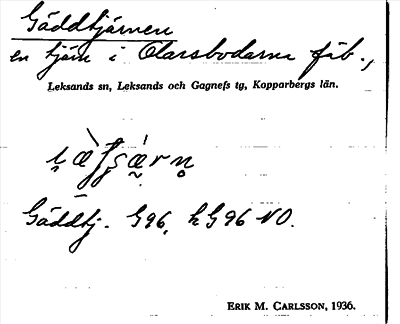 Gäddtjärnen
en tjärn i Olarsbodarna fäb.,
Leksands sn, Leksands och Gagnefs tg, Kopparbergs län.
Gäddtj. G96, h G96 NO.
ERIK M. CARLSSON, 1936.